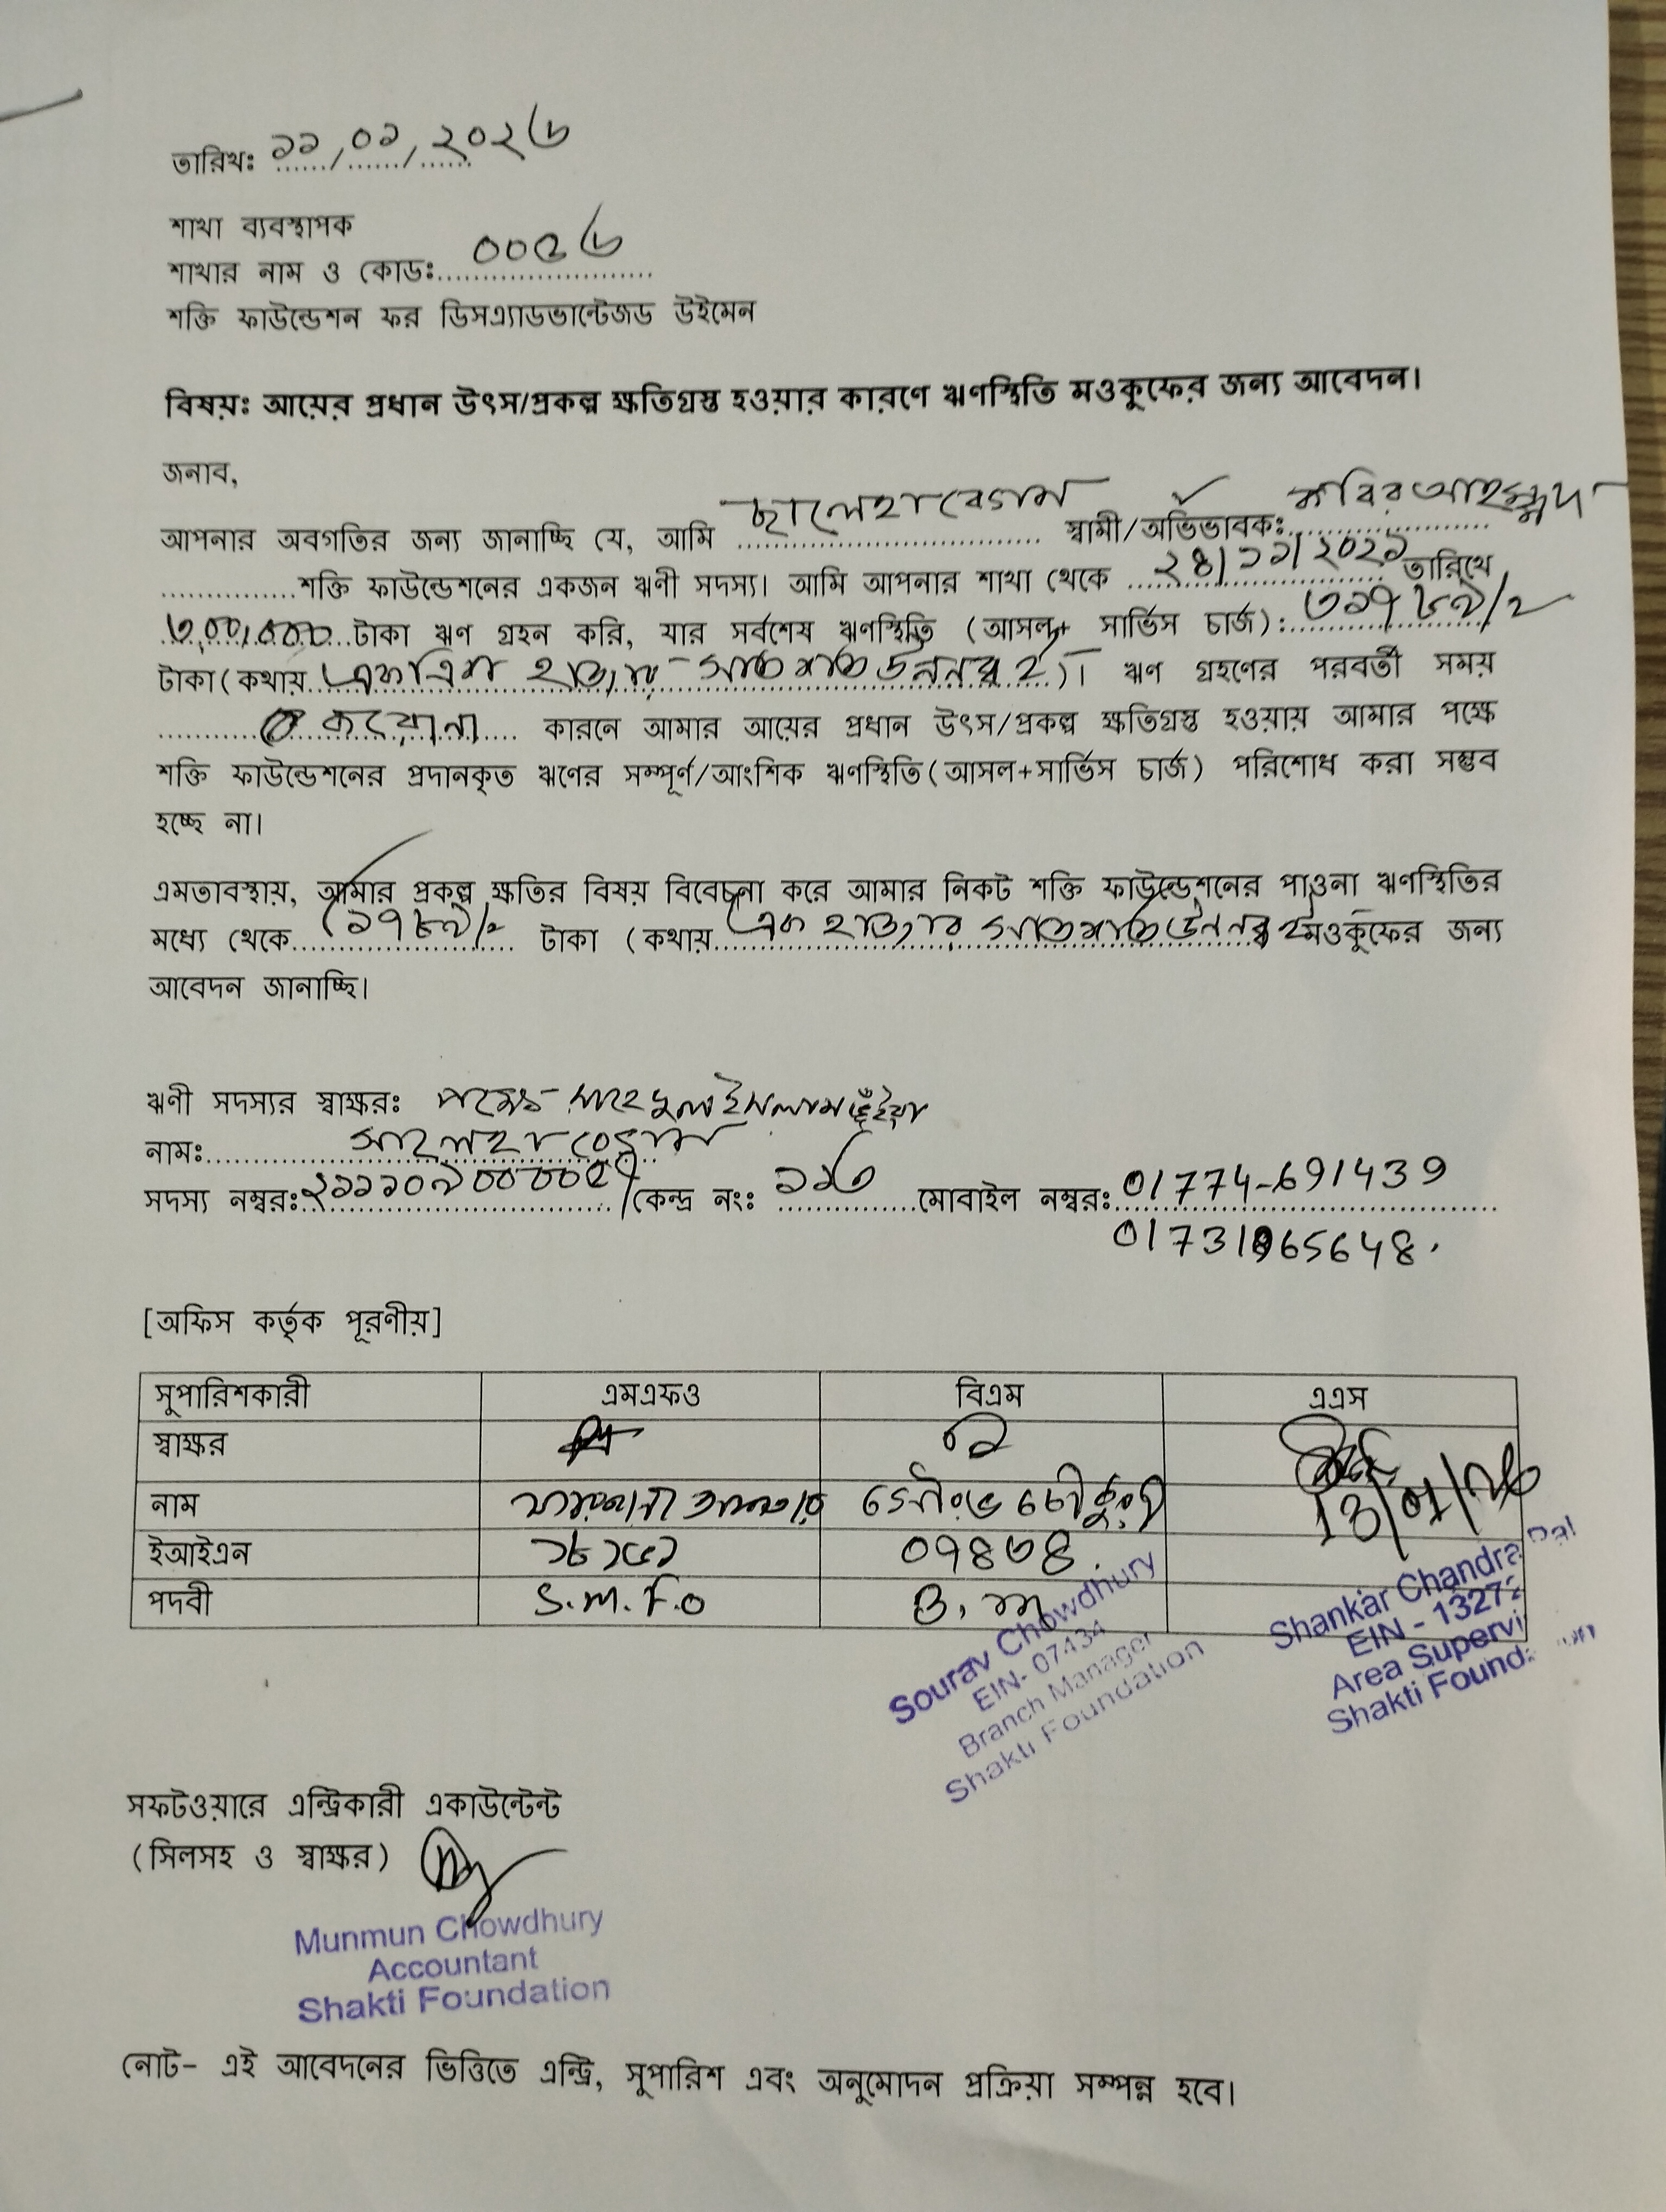 তারিখঃ ১১/০১/২০২৬
শাখা ব্যবস্থাপক
শাখার নাম ও কোডঃ 00৫৬
শক্তি ফাউন্ডেশন ফর ডিসএ্যাডভান্টেজড উইমেন
বিষয়ঃ আয়ের প্রধান উৎস/প্রকল্প ক্ষতিগ্রস্ত হওয়ার কারণে ঋণস্থিতি মওকুফের জন্য আবেদন।
জনাব,
আপনার অবগতির জন্য জানাচ্ছি যে, আমি ছালেহা বেগম স্বামী/অভিভাবকঃ কবির আহম্মদ
শক্তি ফাউন্ডেশনের একজন ঋণী সদস্য। আমি আপনার শাখা থেকে ২৪/১১/২০২১ তারিখে
৩০০,০০০ টাকা ঋণ গ্রহন করি, যার সর্বশেষ ঋণস্থিতি (আসল+ সার্ভিস চার্জ): ৩১৭৮৯/২
টাকা(কথায় একত্রিশ হাজার সাতশত উননব্বই)। ঋণ গ্রহণের পরবর্তী সময়
করোনা কারনে আমার আয়ের প্রধান উৎস/প্রকল্প ক্ষতিগ্রস্ত হওয়ায় আমার পক্ষে
শক্তি ফাউন্ডেশনের প্রদানকৃত ঋণের সম্পূর্ণ/আংশিক ঋণস্থিতি(আসল+সার্ভিস চার্জ) পরিশোধ করা সম্ভব
হচ্ছে না।
এমতাবস্থায়, আমার প্রকল্প ক্ষতির বিষয় বিবেচনা করে আমার নিকট শক্তি ফাউন্ডেশনের পাওনা ঋণস্থিতির
মধ্যে থেকে (১৭৮৯/২ টাকা (কথায় এক হাজার সাতশত উননব্বই মওকুফের জন্য
আবেদন জানাচ্ছি।
ঋণী সদস্যর স্বাক্ষরঃ পক্ষে- ইসলাম ভূঁইয়া
নামঃ সালেহা বেগম
সদস্য নম্বরঃ ২১১১০৯০০০০৫৭ /কেন্দ্র নংঃ ১১৩ মোবাইল নম্বরঃ 01774-691439
01731065648.
[অফিস কর্তৃক পূরণীয়]
সুপারিশকারী এমএফও বিএম এএস
স্বাক্ষর
13/01/26
নাম ফারজানী আক্তার সৌরভ চৌধুরী
ইআইএন ১৮১৫১ 0৭৪৩৪
পদবী S.M.F.O B.M
Sourav Chowdhury
EIN- 07434
Branch Manager
Shakti Foundation
Shankar Chandra Pal
EIN - 13272
Area Supervi
Shakti Found
সফটওয়ারে এন্ট্রিকারী একাউন্টেন্ট
(সিলসহ ও স্বাক্ষর)
Munmun Chowdhury
Accountant
Shakti Foundation
নোট- এই আবেদনের ভিত্তিতে এন্ট্রি, সুপারিশ এবং অনুমোদন প্রক্রিয়া সম্পন্ন হবে।